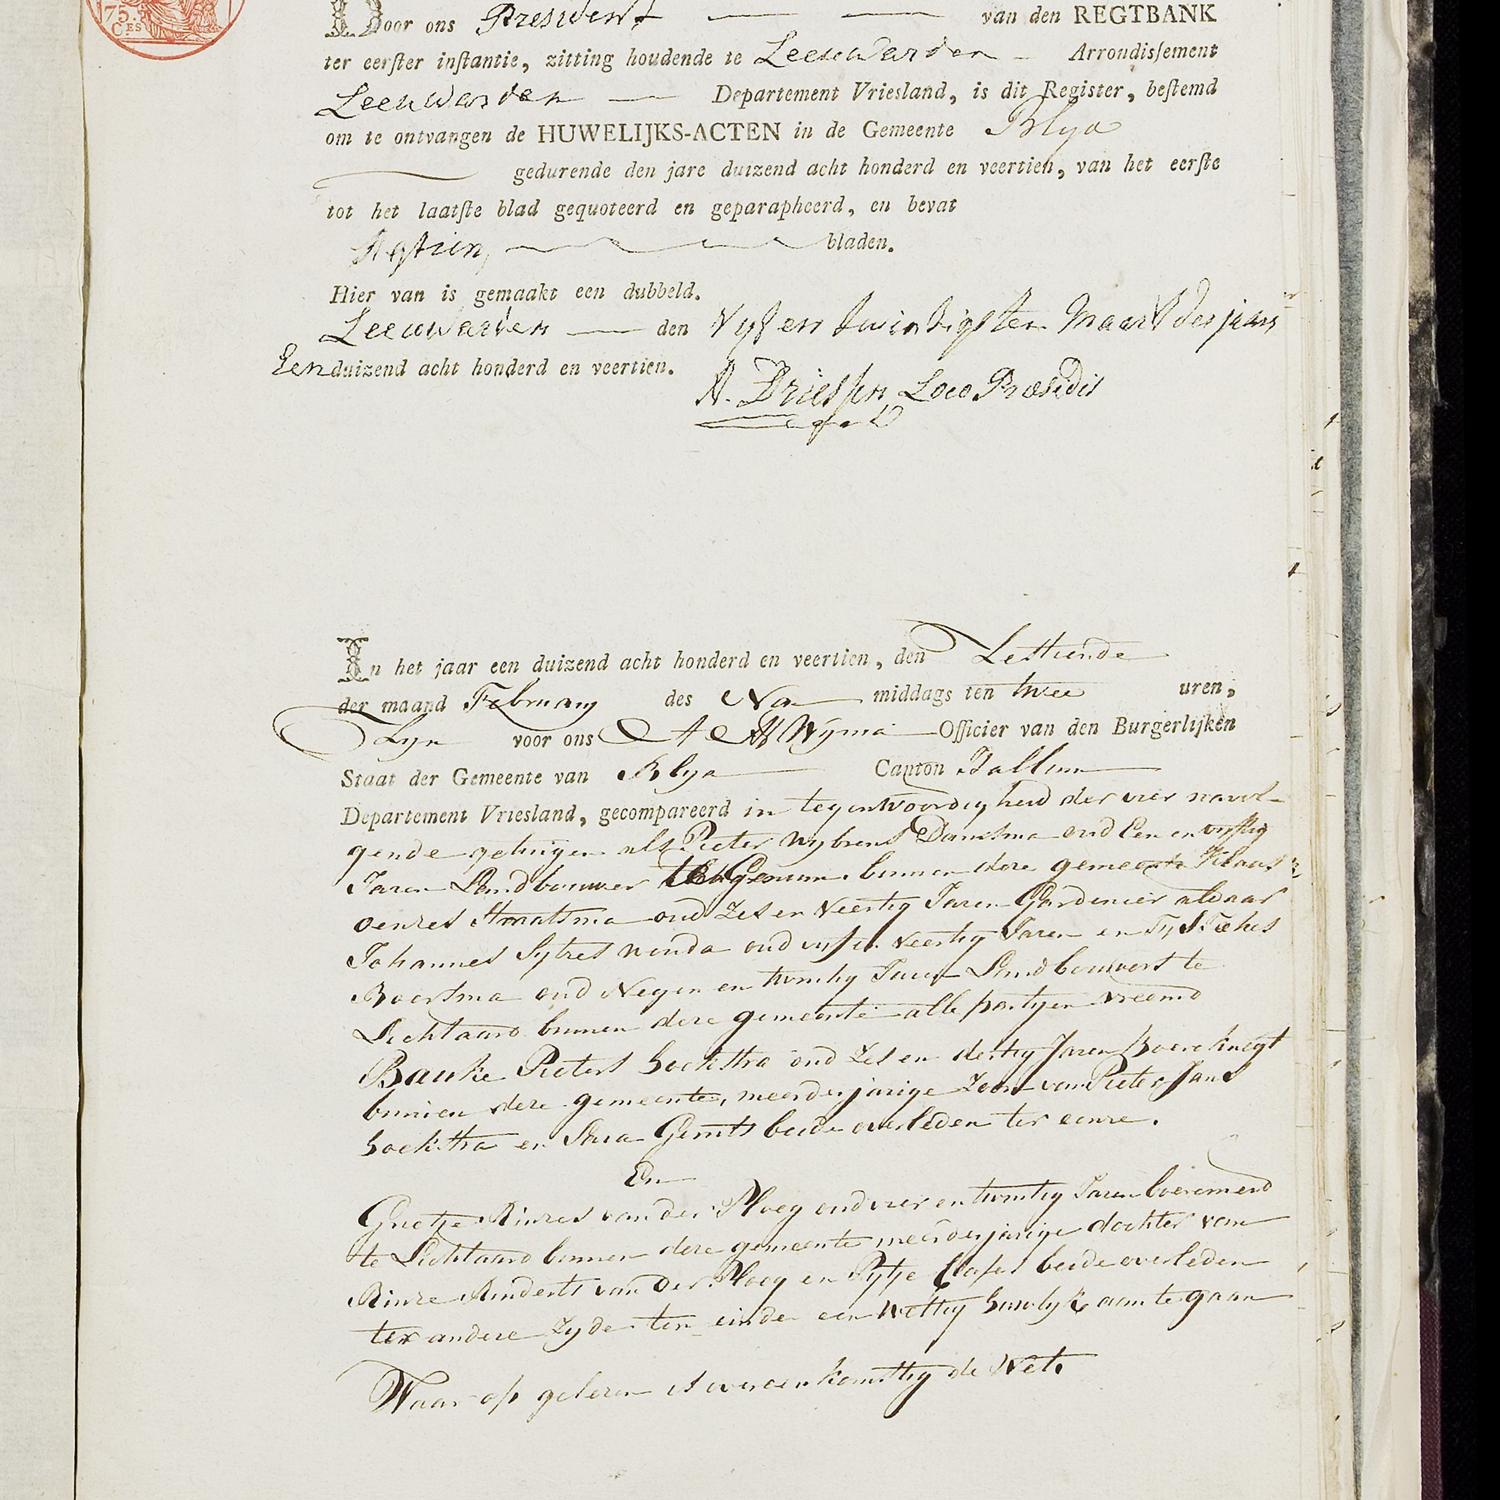 75.
CES
Door ons President van den REGTBANK
ter eerster instantie, zitting houdende te Leeuwarden Arrondissement
Leeuwarden Departement Vriesland, is dit Register, bestemd
om te ontvangen de HUWELIJKS-ACTEN in de Gemeente Blya
gedurende den jare duizend acht honderd en veertien, van het eerste
tot het laatste blad gequoteerd en geparapheerd, en bevat
bladen.
Hier van is gemaakt een dubbeld.
Leeuwarden den Vyf en twintigsten Maart des jaars
Eenduizend acht honderd en veertien.
A. Driessen Loco Præsidis
In het jaar een duizend acht honderd en veertien, den Zestiende
der maand February des Na middags ten twee uren,
Zyn voor ons Wyma Officier van den Burgerlijken
Staat der Gemeente van Blya Canton Hallum
Departement Vriesland, gecompareerd in tegenwoordigheid der vier navol-
gende getuigen als Pieter Wybrens Damsma oud Een en vyftig
Jaren Landbouwer te Genum binnen deze gemeente Klaas
oenzes Straatsma oud Zes en Veertig Jaren Gardenier aldaar
Johannes Sytzes oud vyf en veertig Jaren en
Boersma oud Negen en twintig Jaren Landbouwers te
Lichtaard binnen deze gemeente alle partyen vreemd
Bauke Pieters hoekstra oud Zes en dertig Jaren Boereknegt
binnen deze gemeente, meerderjarige Zoon van Pieter Jans
hoekstra en beide overleden ter eenre.
En
Grietje Rinzes van der Ploeg oud vier en twintig Jaren boeremeid
te Lichtaard binnen deze gemeente meerderjarige dochter van
Rinze van der Ploeg en Pytje Clases beide overleden
ter andere Zyde ten einde een Wettig huwlyk aan te gaan
Waar op gelezen is overeenkomstig de Wet.